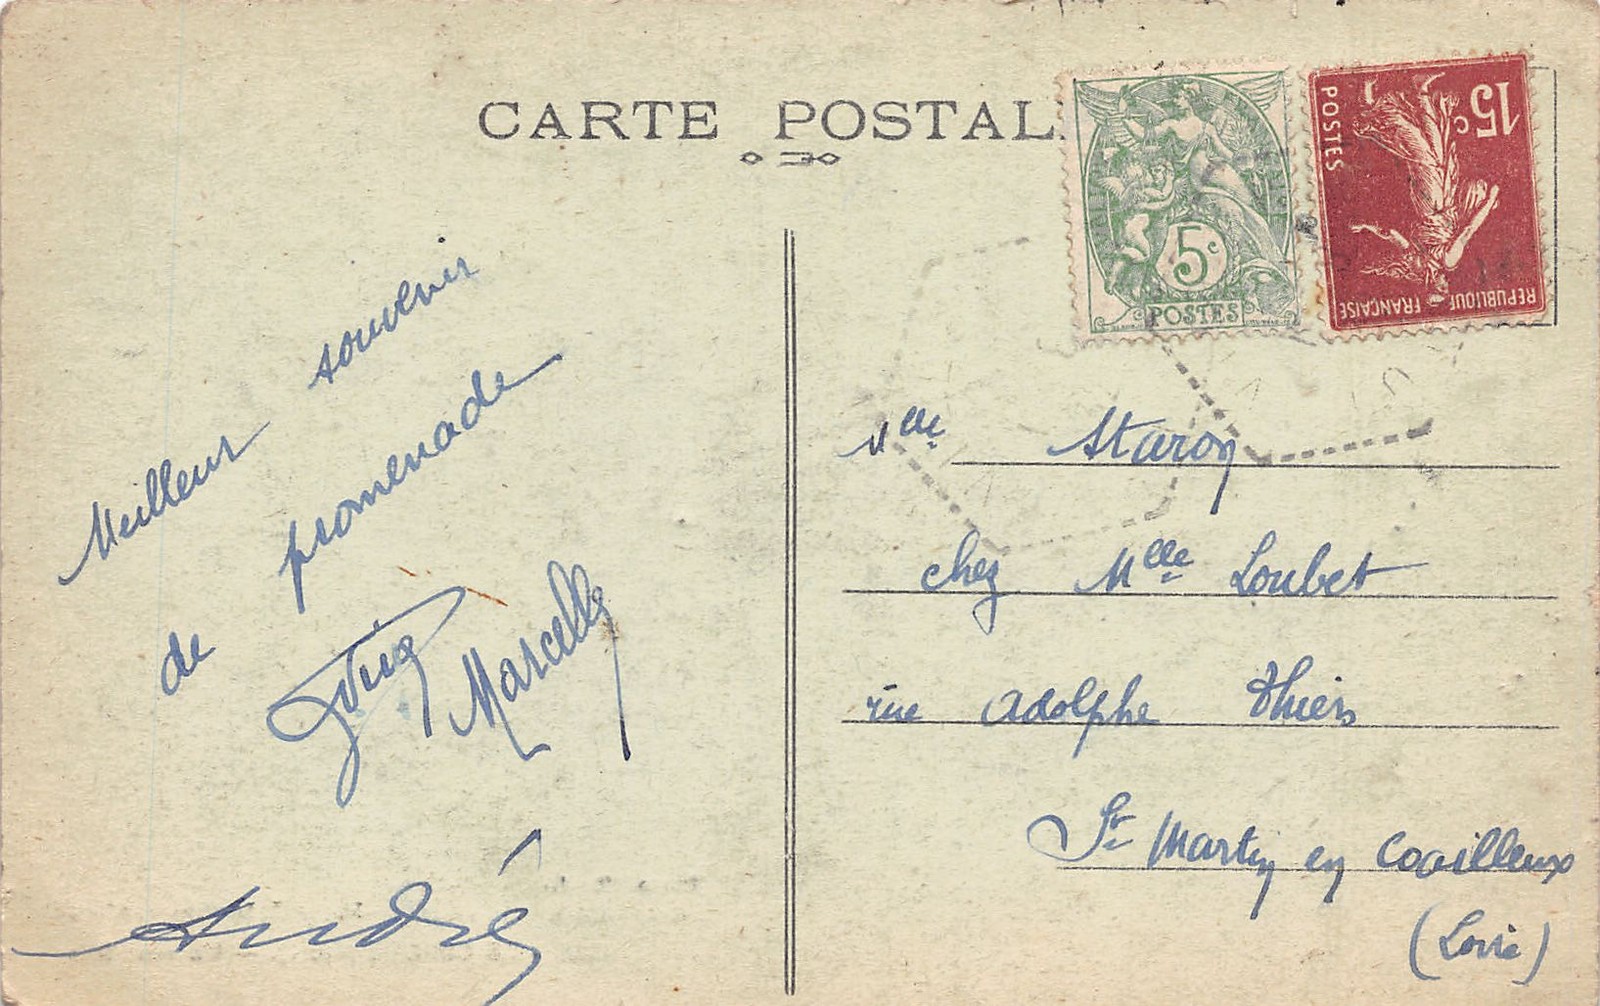 CARTE POSTALE
Meilleur souvenir
de promenade
Marcelle
André
5c
POSTES
15c
POSTES
REPUBLIQUE FRANÇAISE
Mlle Staron
chez Mlle Loubet
rue Adolphe Thiers
St Martin en Coailleux
(Loire)